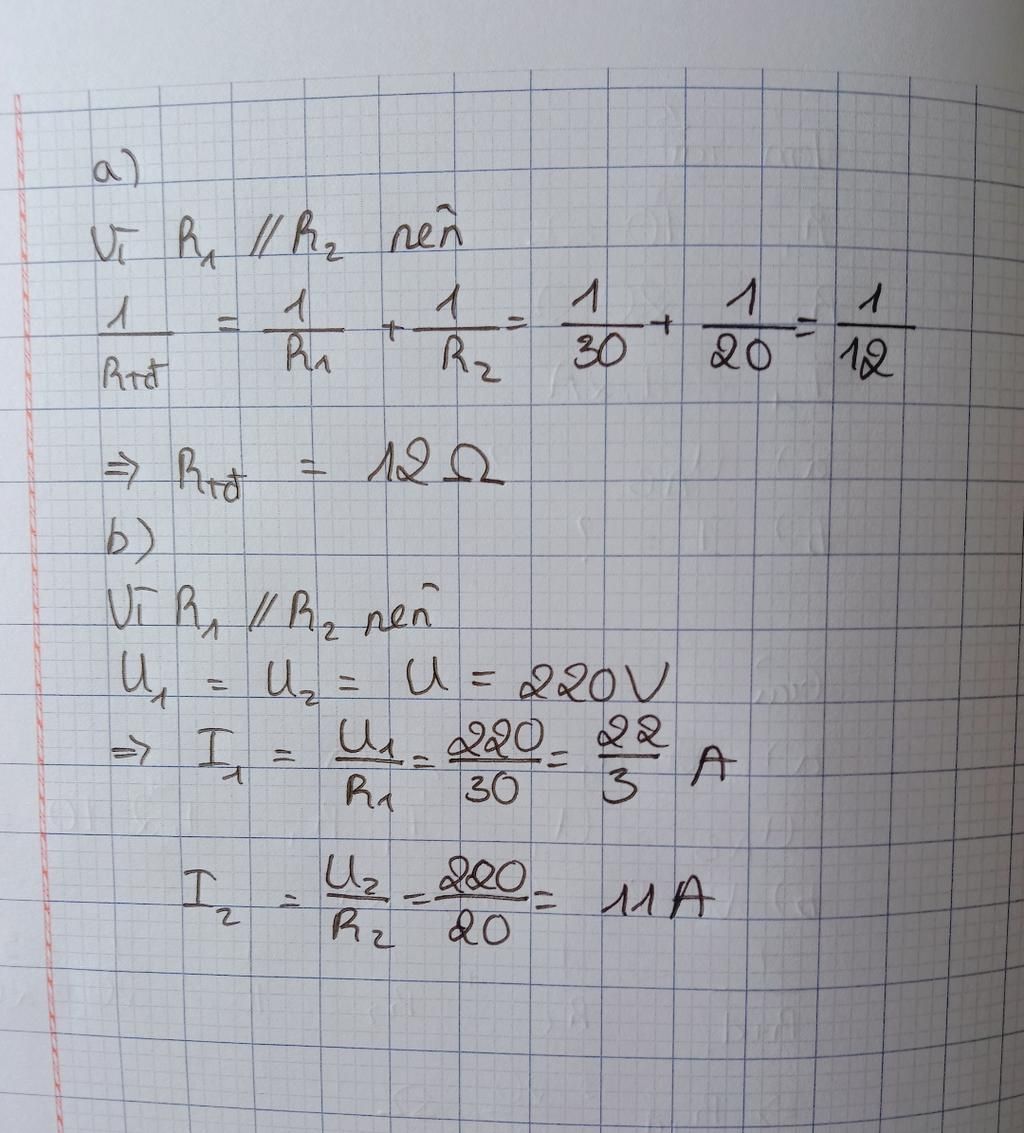 a)
Vì R₁ // R₂ nên
1/Rtđ = 1/R₁ + 1/R₂ = 1/30 + 1/20 = 1/12
⇒ Rtđ = 12 Ω
b)
Vì R₁ // R₂ nên
U₁ = U₂ = U = 220V
⇒ I₁ = U₁/R₁ = 220/30 = 22/3 A
I₂ = U₂/R₂ = 220/20 = 11 A